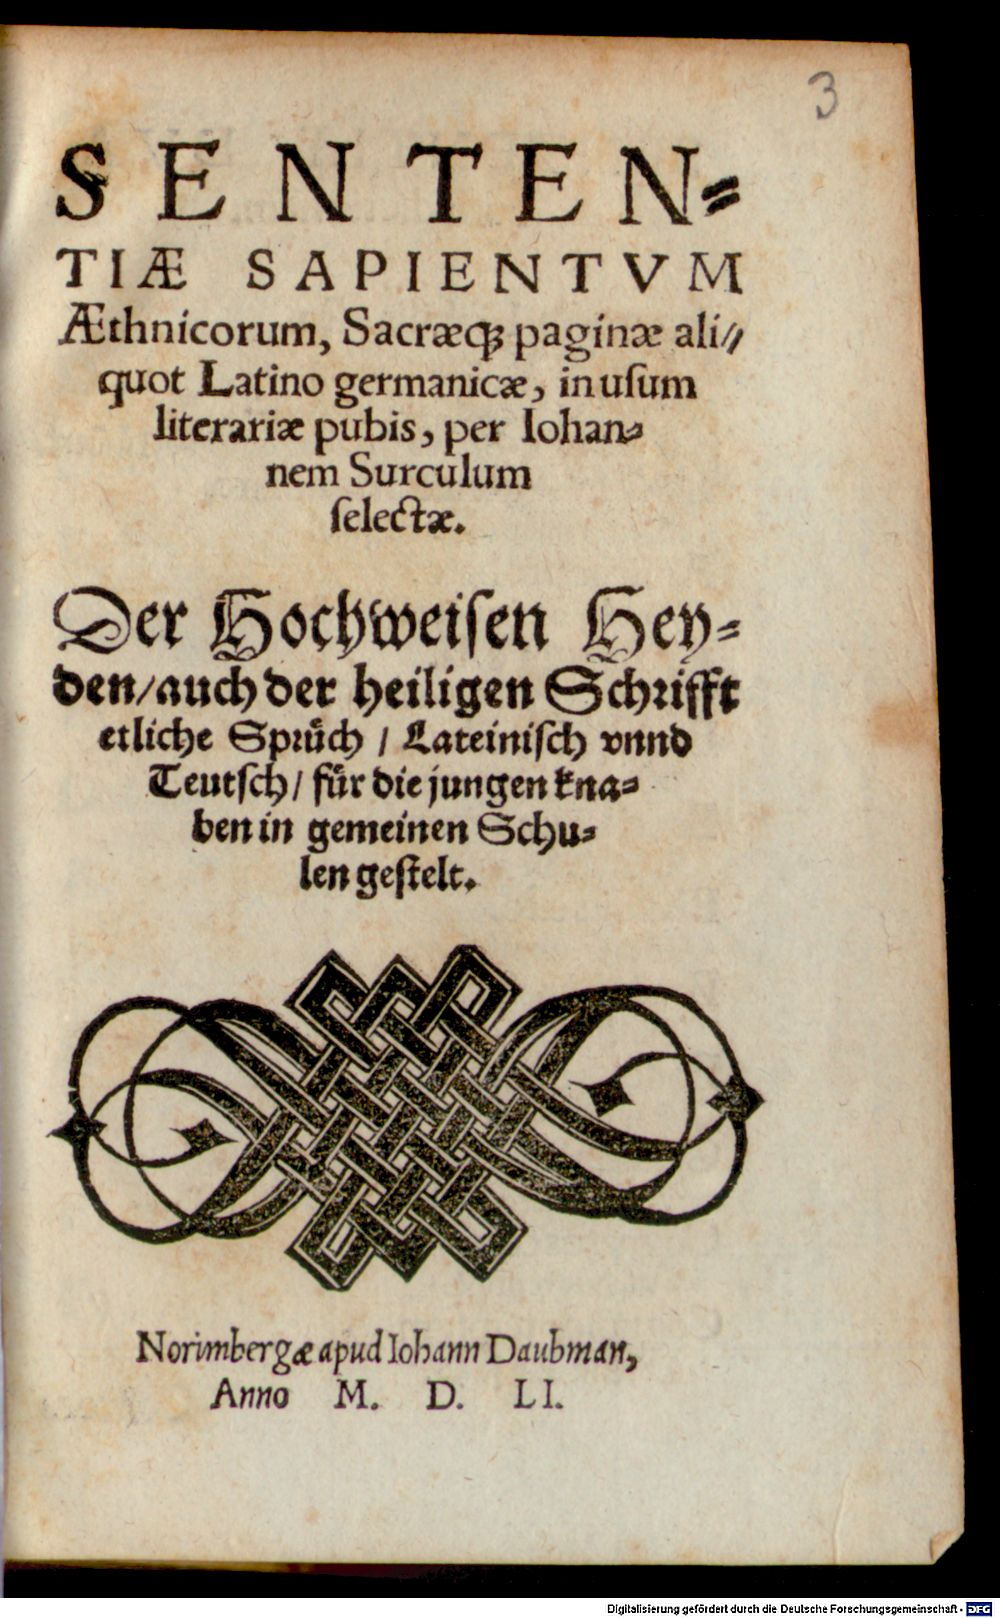 3
SENTEN⸗
TIÆ SAPIENTVM
Æthnicorum, Sacræq́ꝫ paginæ ali⸗
quot Latino germanicæ, in uſum
literariæ pubis, per Iohan⸗
nem Surculum
ſelectæ.
Der Hochweiſen Hey⸗
den/auch der heiligen Schrifft
etliche Spruͤch / Lateiniſch vnnd
Teutſch/ fuͤr die jungen kna⸗
ben in gemeinen Schu⸗
len geſtelt.
Norimbergæ apud Iohann Daubman,
Anno M. D. LI.
Digitalisierung gefördert durch die Deutsche Forschungsgemeinschaft - DFG